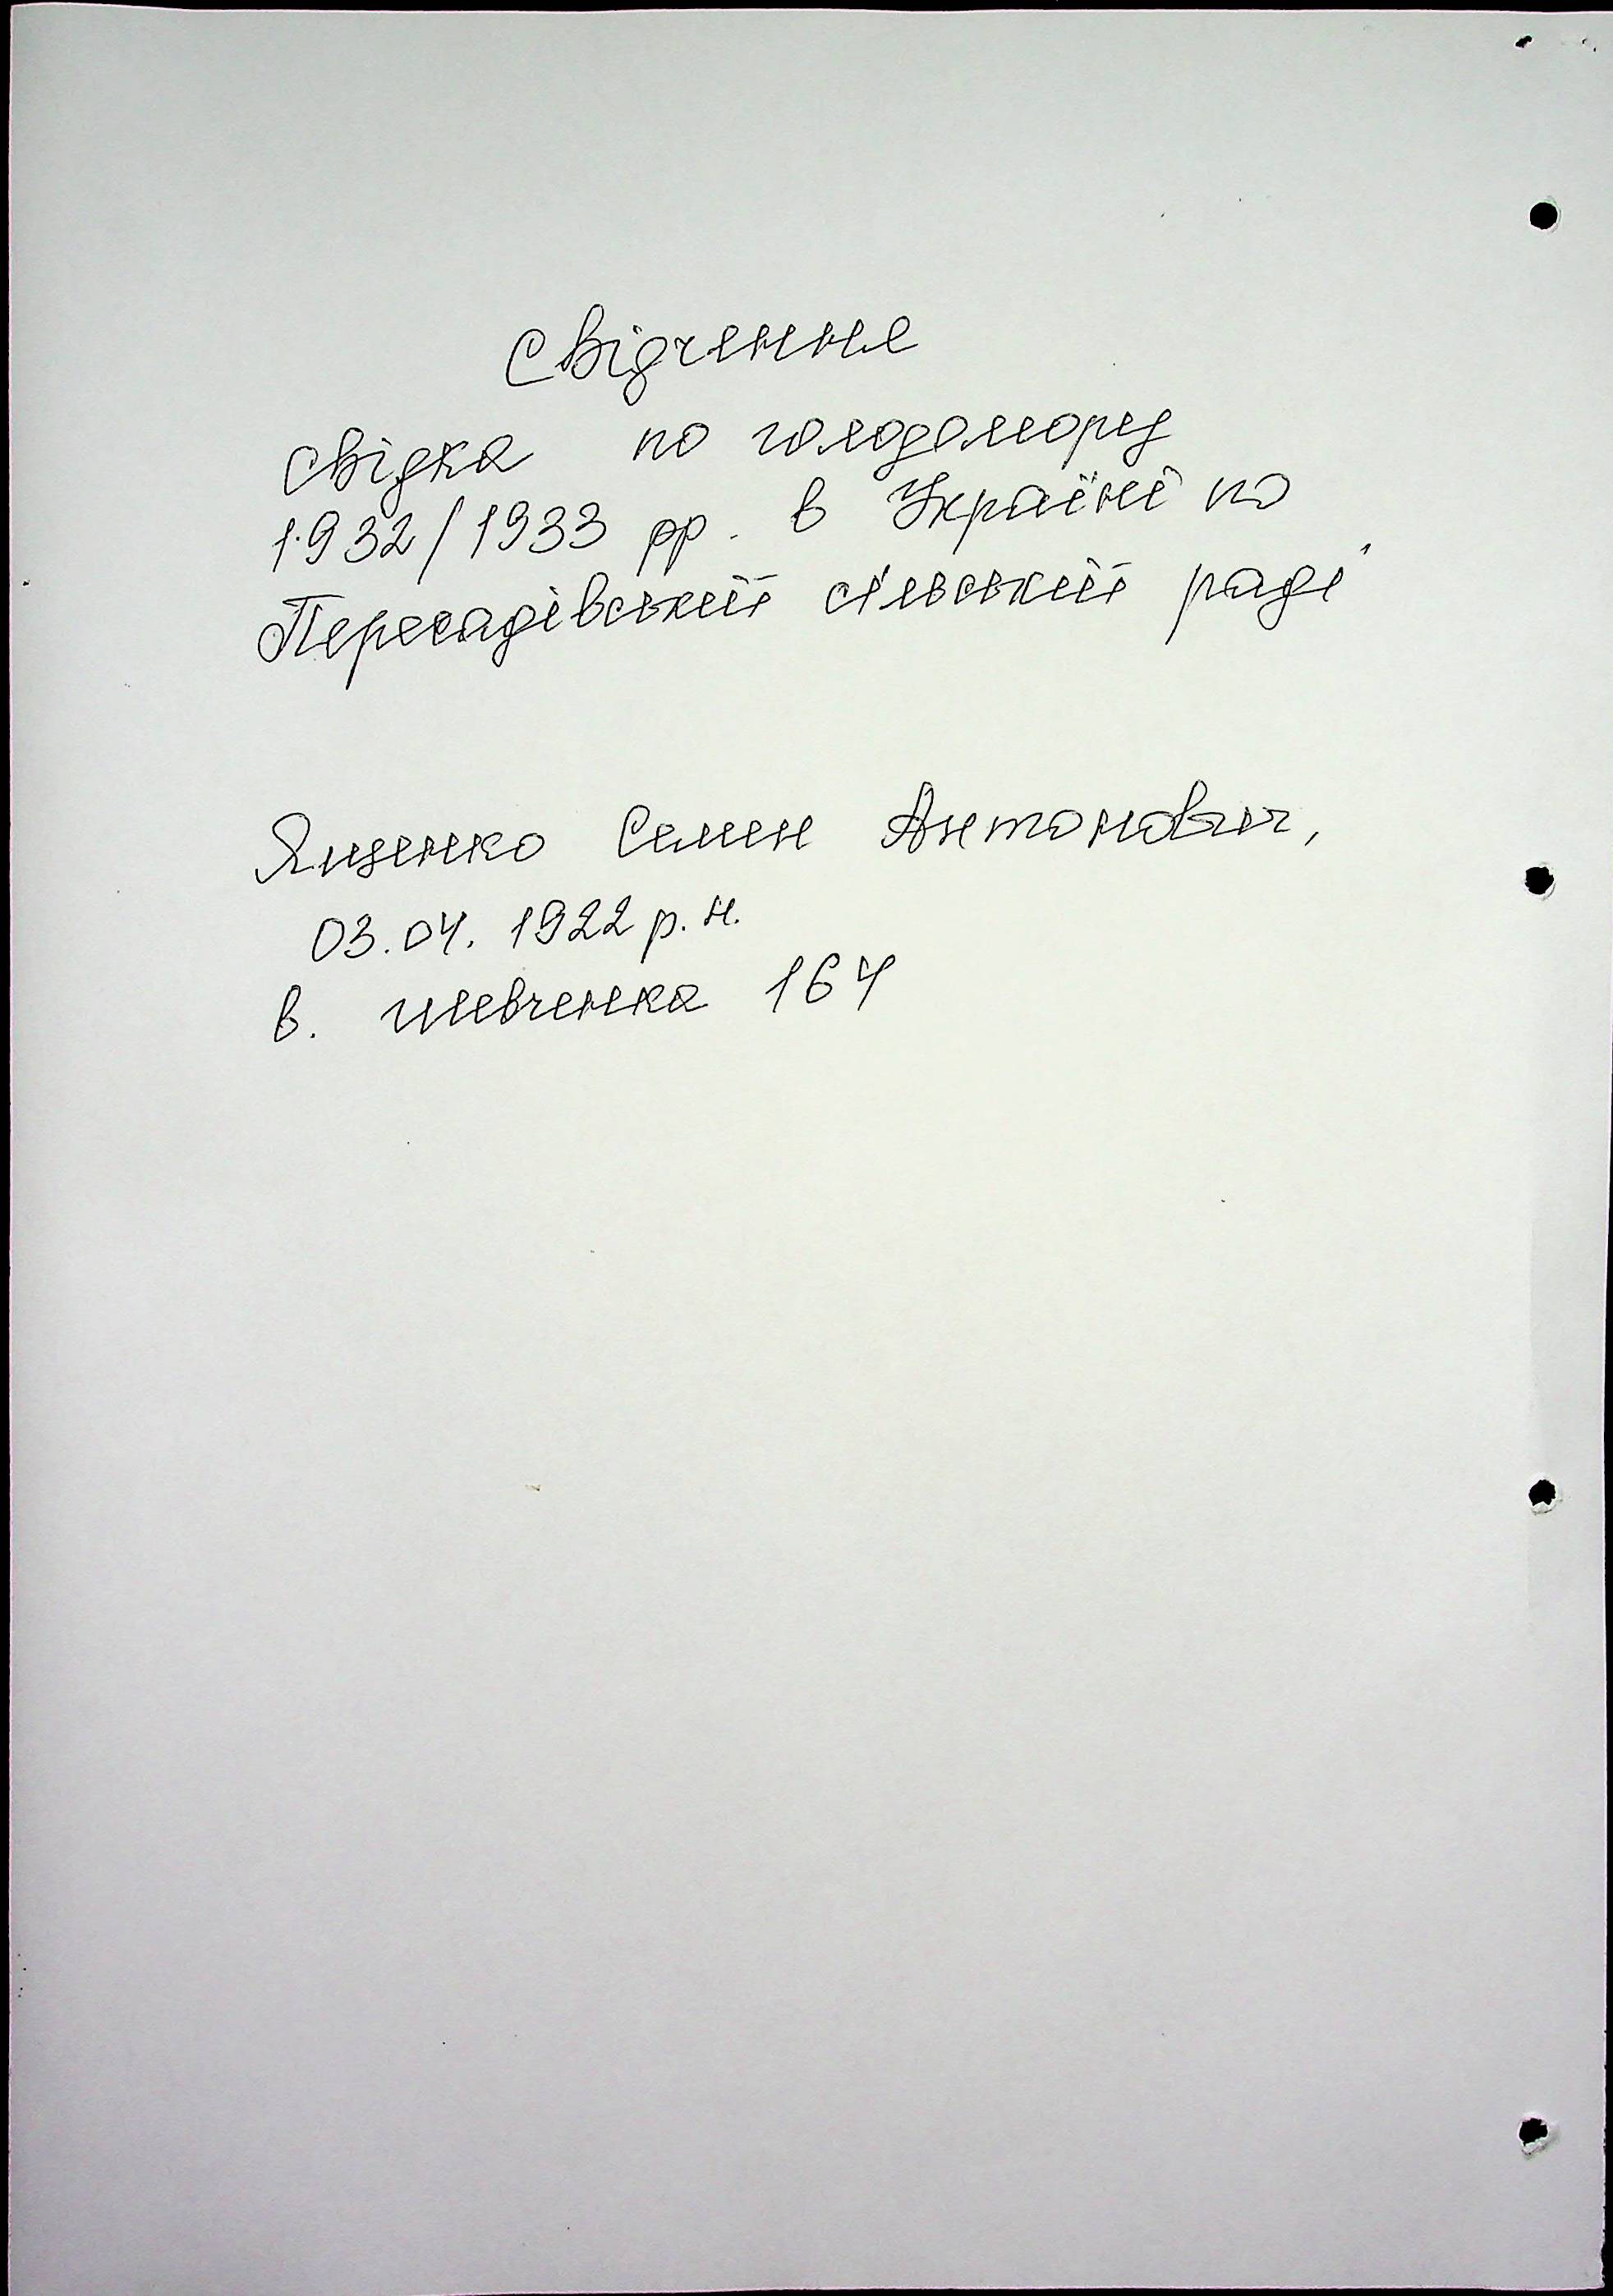 Свідчення
свідка по голодомору
1932/1933 рр. в Україні по
Пересадівській сільській раді
Яценко Семен Антонович,
03.04.1922 р.н.
в. Шевченка 164